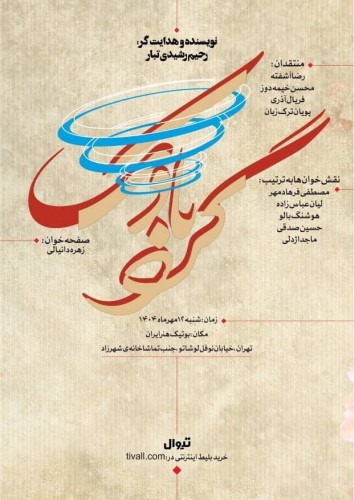 نویسنده و هدایت گر:
رحیم رشیدی تبار
منتقدان:
رضا آشفته
محسن خیمه دوز
فریال آذری
پویان ترک زبان
گردباد
نقش خوان ها به ترتیب:
مصطفی فرهادمهر
لیان عباس زاده
هوشنگ بالو
حسین صدقی
ماجد ازدلی
صفحه خوان:
زهره دانیالی
زمان: شنبه ۱۲ مهر ماه ۱۴۰۴
مکان: بوتیک هنر ایران
تهران، خیابان نوفل لوشاتو، جنب تماشاخانه‌ی شهرزاد
تیوال
خرید بلیط اینترنتی در: tivall.com